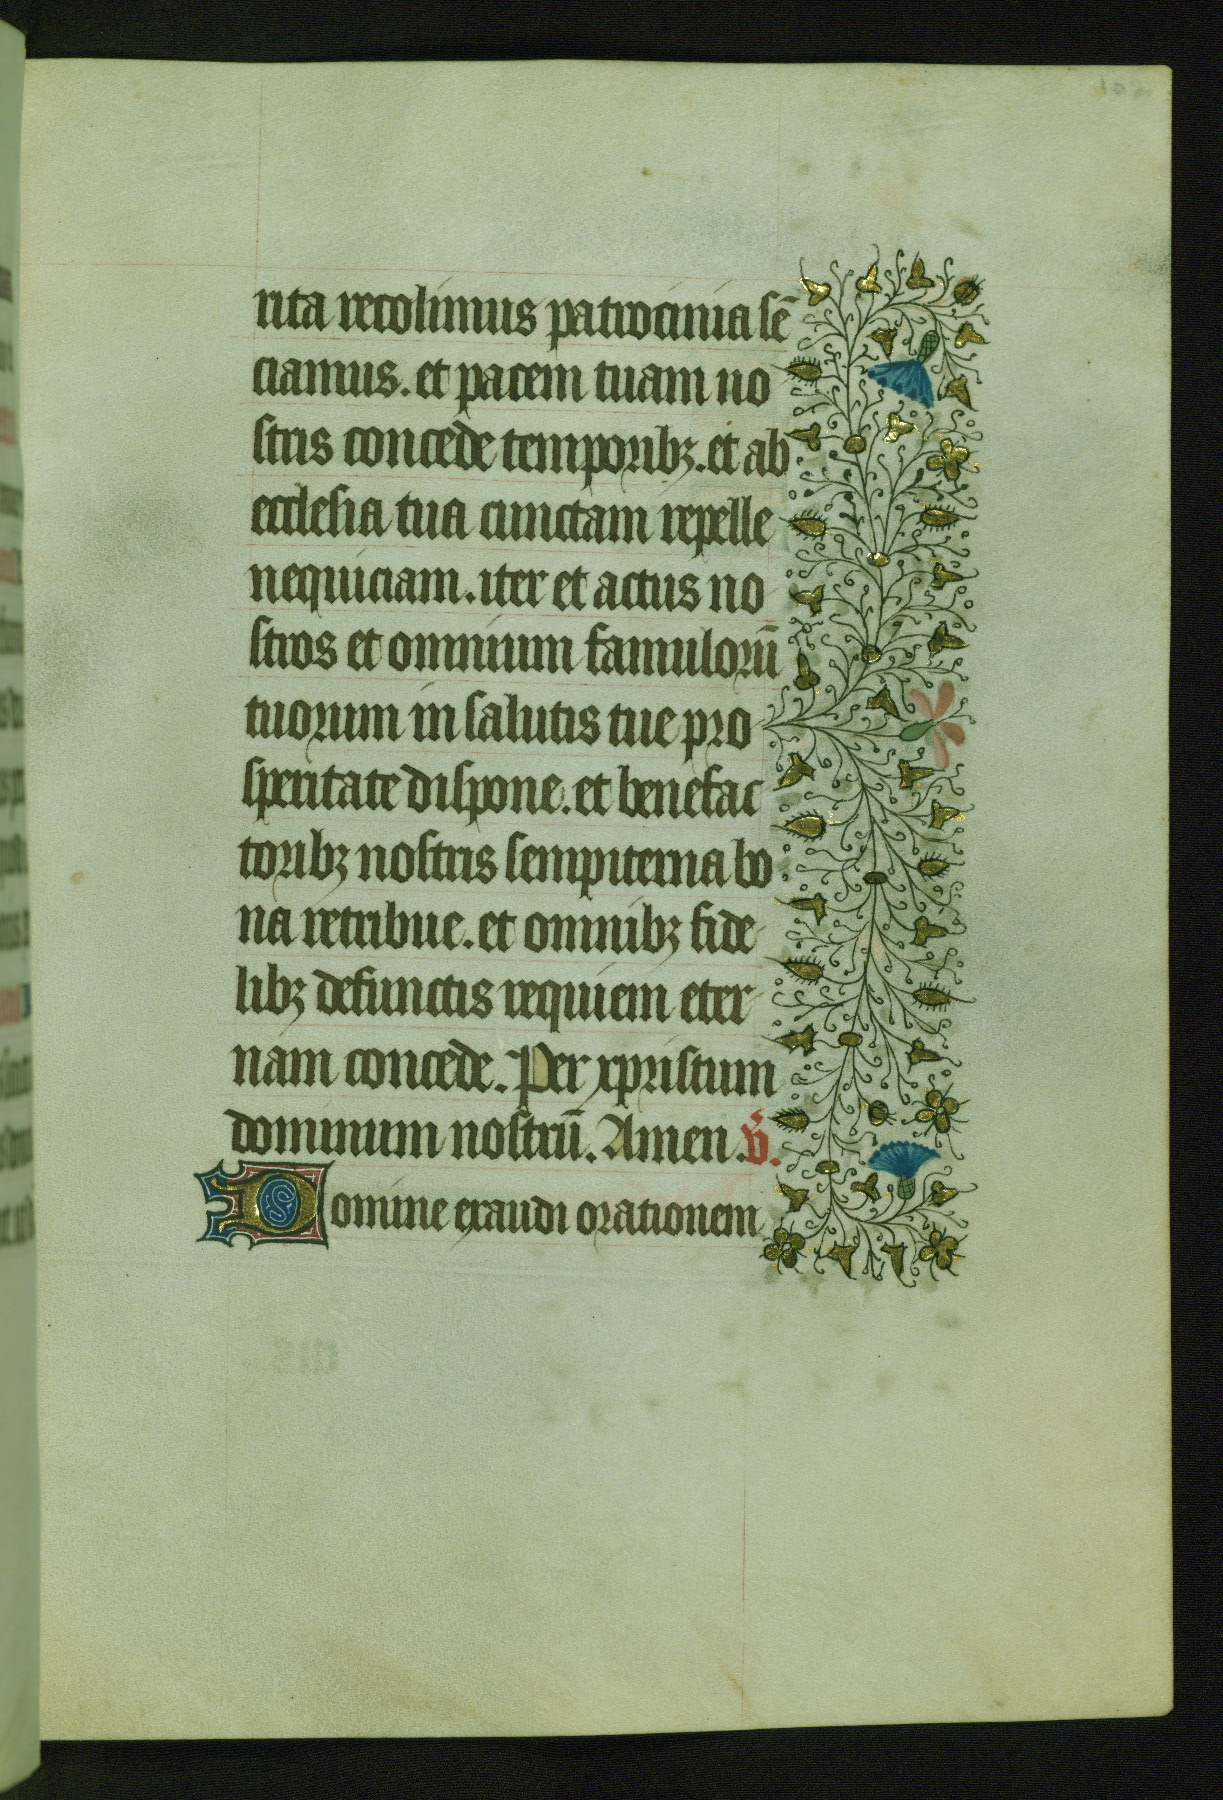 rita recolimus patrocinia sē
ciamus. et pacem tuam no
stris concede temporibꝫ. et ab
ecclesia tua cunctam repelle
nequiciam. iter et actus no
stros et omnium famulorū
tuorum in salutis tue pro
speritate dispone. et benefac
toribꝫ nostris sempiterna bo
na retribue. et omnibꝫ fide
libꝫ defunctis requiem eter
nam concede. Per xpristum
dominum nostrū. Amen. v̄.
Domine exaudi orationem